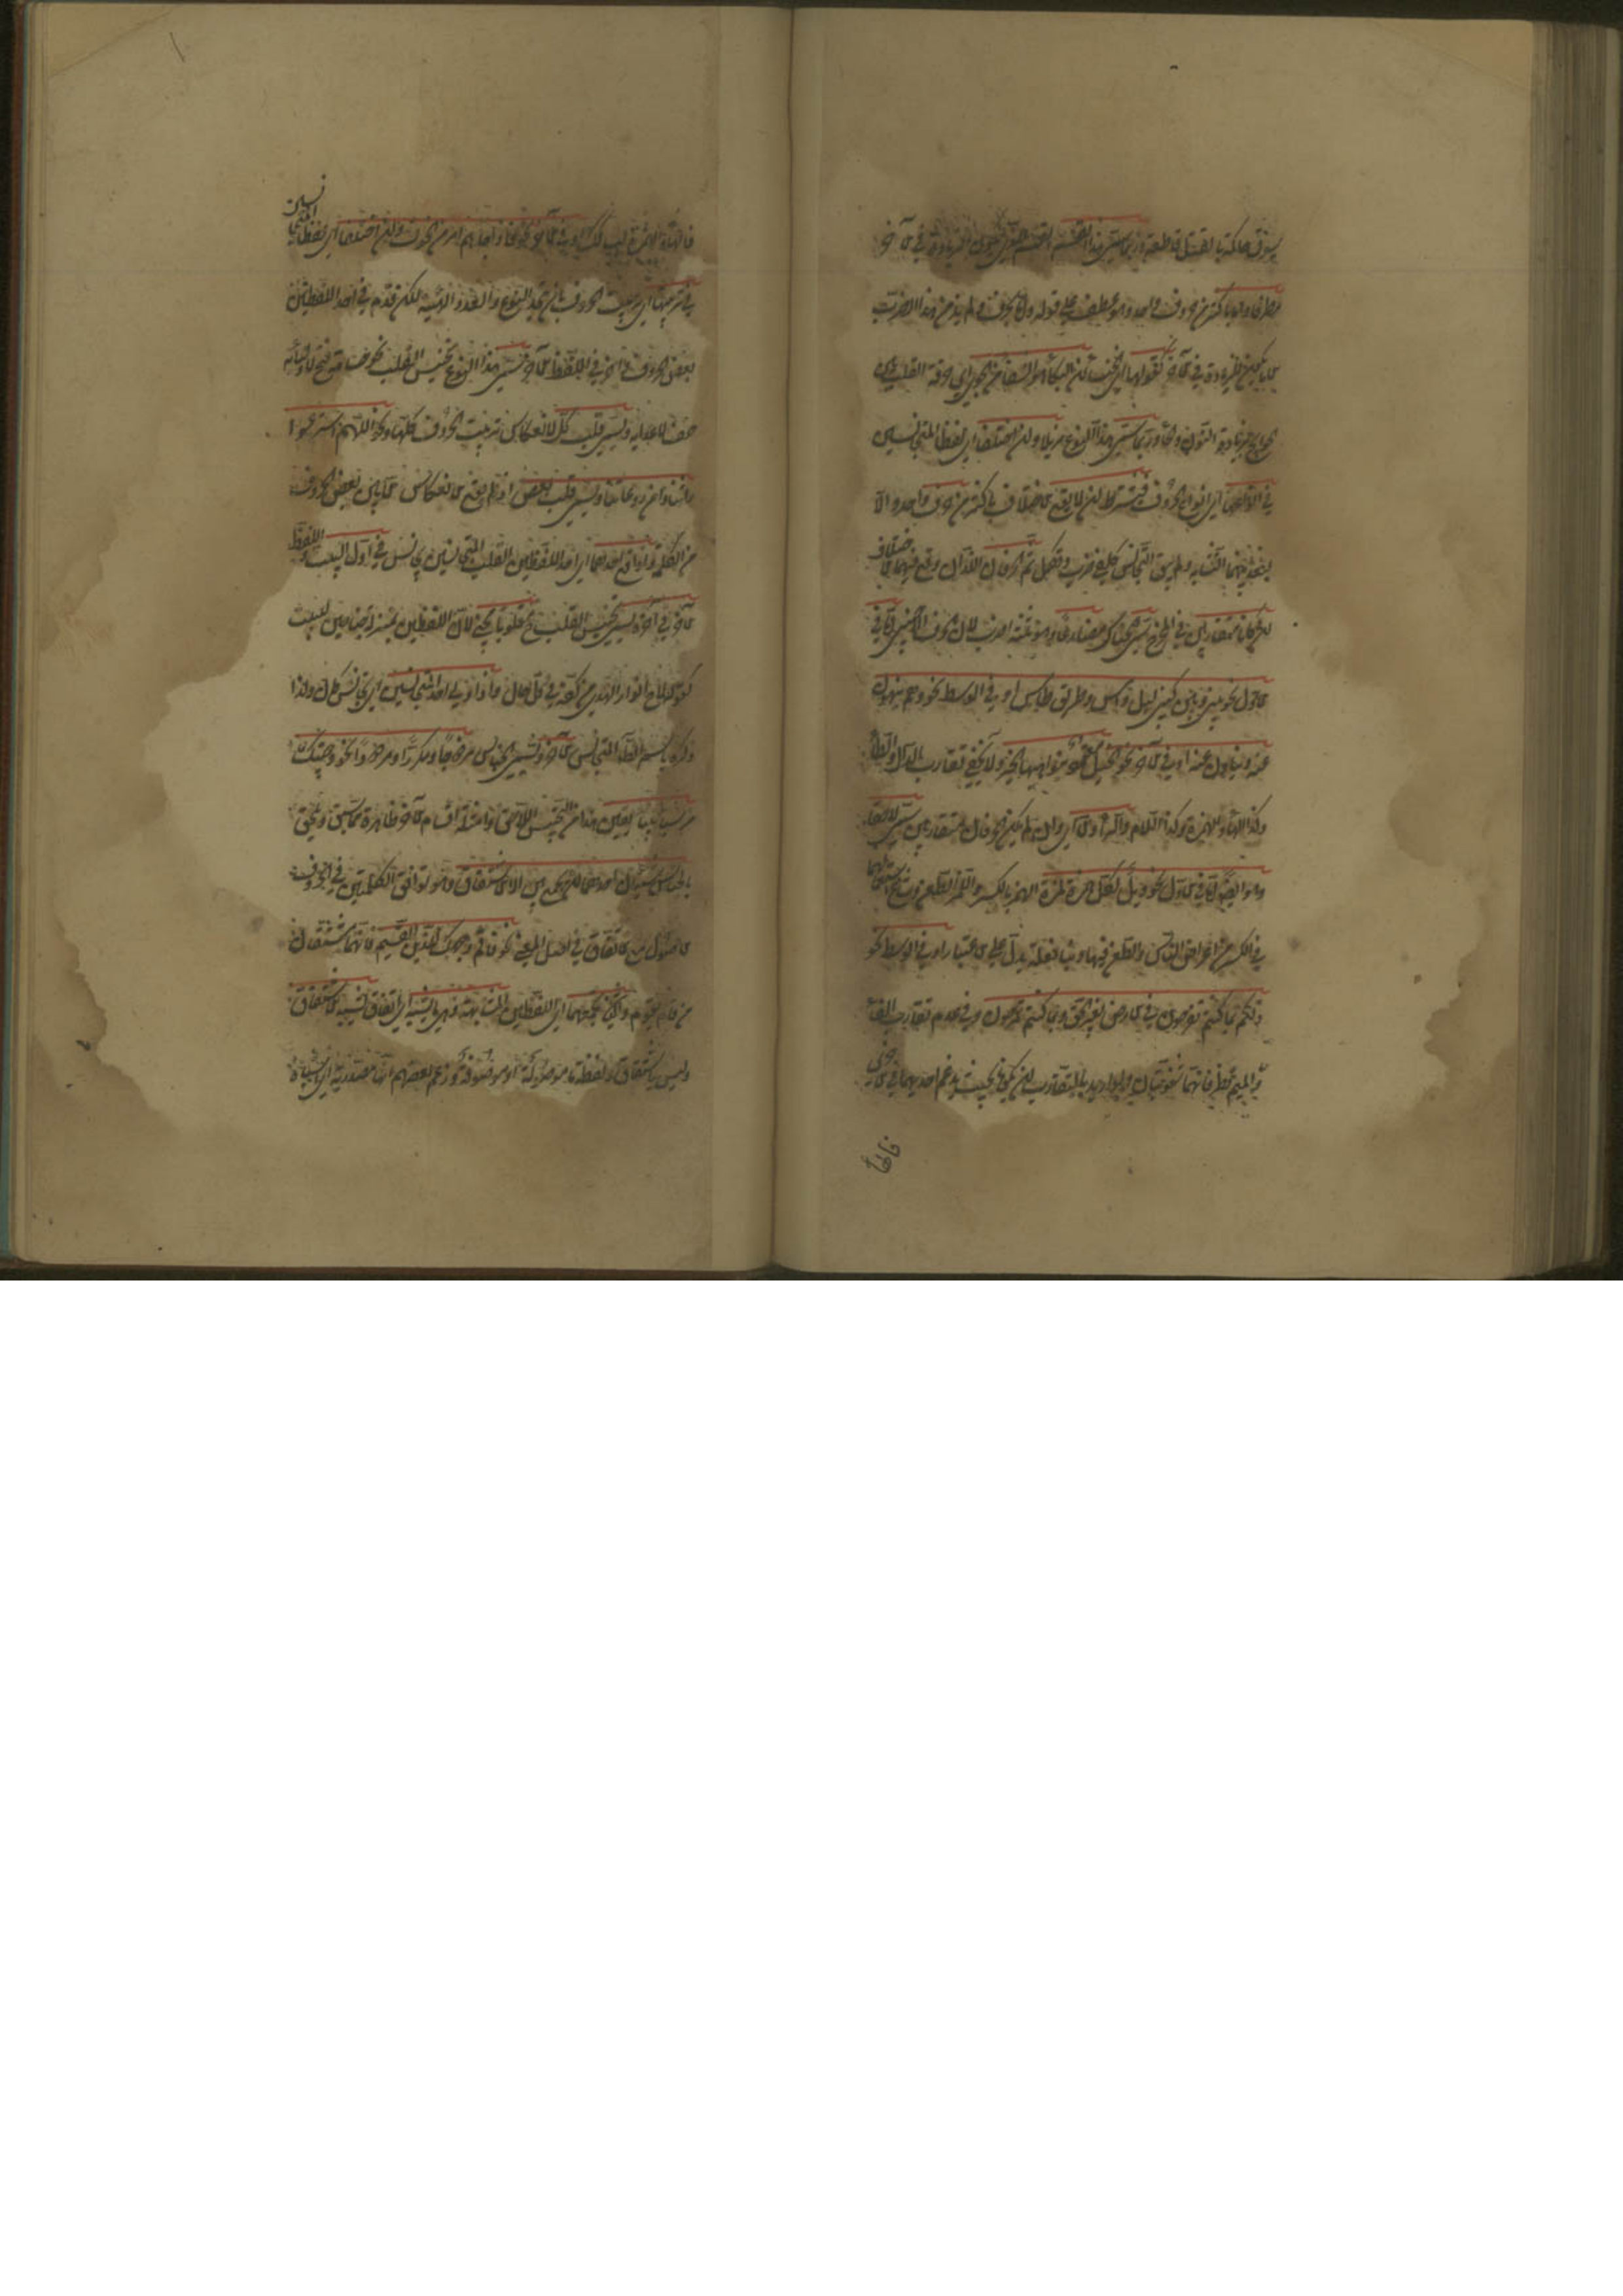 سيوف حاكمة بالقتل قاطعة وربما سمي هذا القسم الذي يكون الزيادة في الآخر
مطرفا واما باكثر من حروف واحد وهو عطف على قوله واما بحرف ولم يذكر من هذا الضرب
ما يكون الزيادة في الآخر كقولها اي الخنساء ان البكاء هو الشفاء من الجوى اي حرقة القلب بين
الجوانح بزيادة النون والحاء وربما سمي هذا النوع مذيلا وان اختلفا اي لفظا المتجانسين
في انواعها اي انواع الحروف فيشترط ان لا يقع الاختلاف باكثر من حرف واحد والا
لبعد بينهما التشابه ولم يبق التجانس كلفظي ضرب ونكل ثم الحرفان اللذان وقع فيهما الاختلاف
ان كانا متقاربين في المخرج سمي الجناس مضارعا وهو ثلثة اضرب لان الحرف الاجنبي اما في
الاول نحو بيني وبين كني ليل دامس وطريق طامس او في الوسط نحو وهم ينهون
عنه وينأون عنه او في الآخر نحو الخيل معقود بنواصيها الخير ولا يخفى تقارب الدال والطاء
وكذا الهاء والهمزة وكذا اللام والراء والا اي وان لم يكن الحرفان متقاربين سمي لاحقا
وهو ايضا اما في الاول نحو ويل لكل همزة لمزة الهمز الكسر واللمز الطعن وشاع استعمالهما
في الكسر من اعراض الناس والطعن فيها وبناء فعلة يدل على الاعتياد او في الوسط نحو
ذلكم بما كنتم تفرحون في الارض بغير الحق وبما كنتم تمرحون وفي عدم تقارب الفاء
والميم نظر فانهما شفويتان وان اريد بالتقارب ان يكونا بحيث يدغم احديهما في الاخرى
فالها
فالهاء والهمزة ليستا كذلك او في الآخر نحو فاذا جاءهم امر من الخوف وان اختلفا اي لفظا المتجانسين
في ترتيبها اي ترتيب الحروف بان يتحد النوع والعدد والهيئة لكن قدم في احد اللفظين
بعض الحروف واخر في اللفظ الآخر سمي هذا النوع تجنيس القلب نحو حسامه فتح لاوليائه
حتف لاعدائه ويسمى قلب كل لانعكاس ترتيب الحروف كلها ونحو اللهم استر عوراتنا
وآمن روعاتنا ويسمى قلب بعض اذ لم يقع الانعكاس الا بين بعض الحروف
من الكلمة واذا وقع احدهما اي احد اللفظين القلب المتجانسين تجانس في اول البيت واللفظ
الآخر في آخره يسمى تجنيس القلب ح مقلوبا مجنحا لان اللفظين بمنزلة جناحين للبيت
كقوله لاح انوار الهدى من كفه في كل حال واذا ولي احد المتجانسين اي تجانس كان ولذا
ذكره باسم الظاهر المتجانس الآخر ويسمى الجناس مزدوجا ومكررا ومرددا نحو وجئتك
من سبأ بنبأ يقين هذا من التجنيس اللاحق وامثلة اقسام الآخر ظاهرة مما سبق ويلحق
بالجناس شيئان احدهما ان يجمع بين اللفظين الاشتقاق وهو توافق الكلمتين في الحروف
الاصول مع الاتفاق في اصل المعنى نحو فاقم وجهك للدين القيم فانهما مشتقان
من قام يقوم والثاني ان يجمعهما اي اللفظين المشابهة وهي ما يشبه اي اتفاق يشبه الاشتقاق
وليس باشتقاق ولفظة ما موصولة او موصوفة وزعم بعضهم انها مصدرية اي اشباه